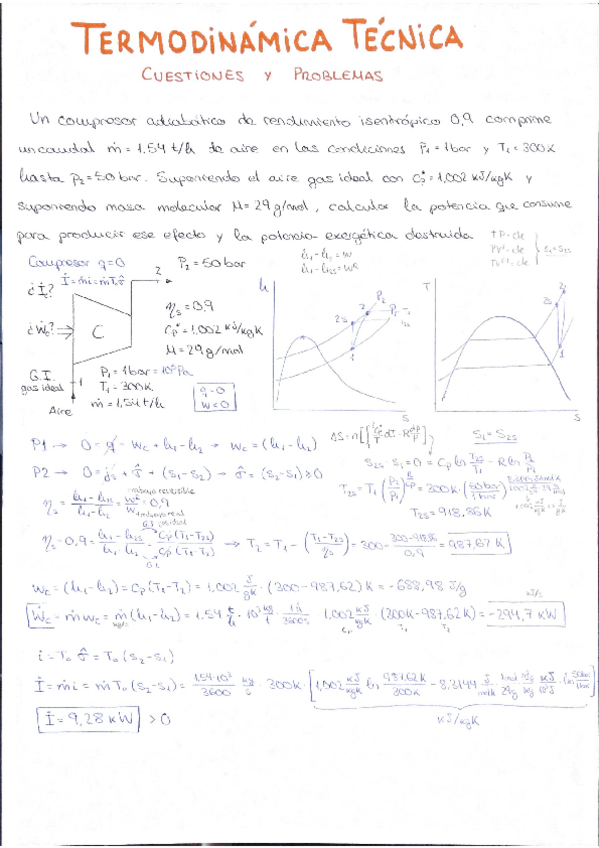 TERMODINÁMICA TÉCNICA
CUESTIONES Y PROBLEMAS
Un compresor adiabático de rendimiento isentrópico 0,9 comprime
un caudal ṁ = 1.54 t/h de aire en las condiciones P₁ = 1bar y T₁ = 300K
hasta P₂ = 50 bar. Suponiendo el aire gas ideal con Cp* = 1,002 kJ/kgK y
suponiendo masa molecular M = 29 g/mol, calcular la potencia que consume
para producir ese efecto y la potencia exergética destruida
Compresor q=0
P₂ = 50 bar
h₁-h₂ = w
h₁-h₂s = wˢ
S₁ = S₂s
İ = ṁi = ṁT₀σ̂
2
¿İ?
¿Ẇc?
C
ηs = 0,9
Cp* = 1,002 kJ/kgK
M = 29 g/mol
G.I.
gas ideal
1
Aire
P₁ = 1bar = 10⁵ Pa
T₁ = 300K
ṁ = 1,54 t/h
q=0
w<0
h
2s
2
P₂
P₁
1
S
T
2s
2
1
S
P1 → 0 = q - wc + h₁ - h₂ → wc = (h₁-h₂)
S₁ = S₂s
S₂s - S₁ = 0 = Cp ln T₂s/T₁ - R ln P₂/P₁
P2 → 0 = js + σ̂ + (s₁-s₂) → σ̂ = (s₂-s₁) ≥ 0
T₂s = T₁ (P₂/P₁)^R/Cp = 300K · (50bar/1bar)
T₂s = 918,86K
ηs = h₁-h₂s / h₁-h₂ = wˢ/w = 0,9
trabajo reversible
ηs = 0,9 = h₁-h₂s / h₁-h₂ = Cp(T₁-T₂s) / Cp(T₁-T₂) → T₂ = T₁ - (T₁-T₂s / ηs) = 300 - 300-918,86 / 0,9 = 987,62 K
G.I.
wc = (h₁-h₂) = Cp(T₁-T₂) = 1,002 J/gK · (300-987,62) K = -688,98 J/g
Ẇc = ṁwc = ṁ(h₁-h₂) = 1.54 t/h · 10³ kg/t · 1h/3600s · 1,002 kJ/kgK (300K-987,62K) = -294,7 kW
kJ/s
kg/s
Cp
T₁
T₂
i = T₀ σ̂ = T₀ (s₂-s₁)
İ = ṁi = ṁT₀(s₂-s₁) = 1.54·10³/3600 kg/s · 300K · [1,002 kJ/kgK ln 987,62K/300K - 8,3144 J/molK · mol/29g · 10³g/kg · kJ/10³J · ln 50bar/1bar]
kJ/kgK
İ = 9,28 kW > 0